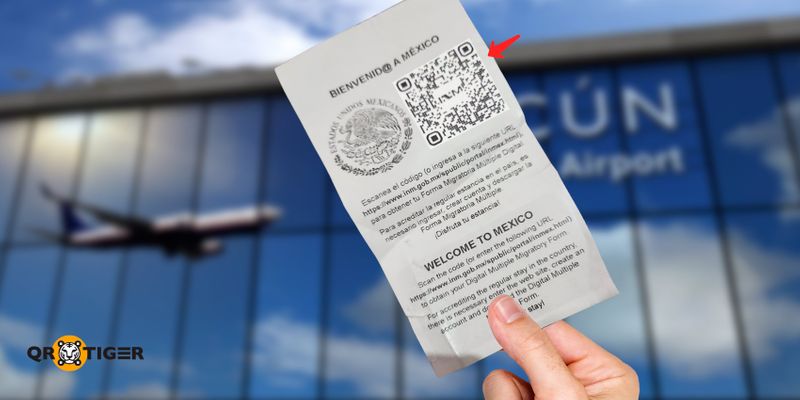 BIENVENID@ A MÉXICO
ESTADOS UNIDOS MEXICANOS
INM
Escanea el código (o ingresa a la siguiente URL
https://www.inm.gob.mx/spublic/portal/inmex.html)
para obtener tu Forma Migratoria Múltiple Digital.
Para acreditar la regular estancia en el país, es
necesario ingresar, crear cuenta y descargar la
Forma Migratoria Múltiple.
¡Disfruta tu estancia!
WELCOME TO MEXICO
Scan the code (or enter the following URL
https://www.inm.gob.mx/spublic/portal/inmex.html)
to obtain your Digital Multiple Migratory Form.
For accrediting the regular stay in the country,
there is necessary enter the web site, create an
account and the Digital Multiple
Form.
stay!
CÚN
Airport
QR TIGER